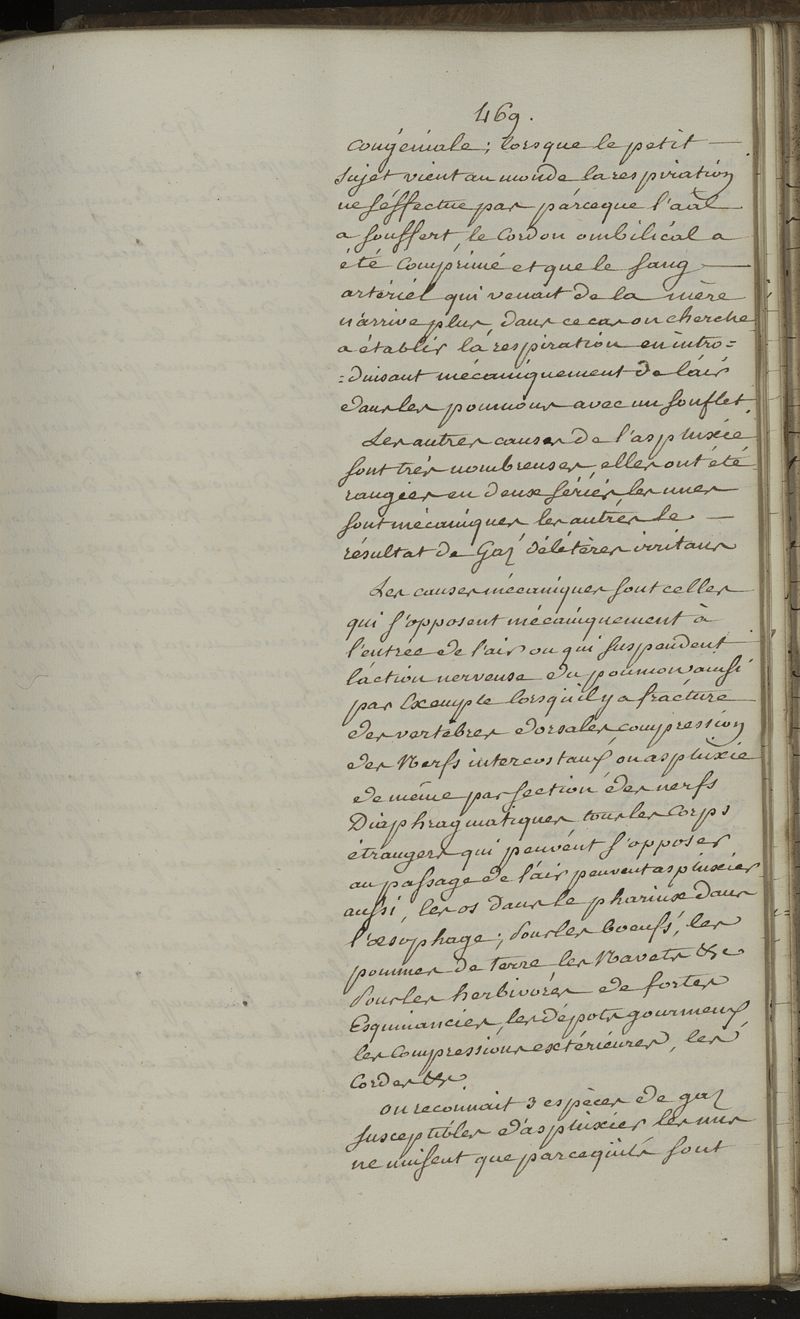 469.
Congéniale; lorsque le petit —
sujet vient au monde la respiration
ne s'éffectue pas parceque l'
a souffert le Cordon ombilical a
été Comprimé et que le sang —
artériel qui venait de la mère
n'arrive plus, dans ce cas on cherche
a établir la respiration en intro=
=duisant mécaniquement de l'air
dans les poumons avec un souflet.
Les autres causes de l'asphixie
sont trés nombreuses, elles ont été
rangées en deux séries les unes
sont mécaniques les autres le —
résultat de Gaz délétères irritans
Les causes mécaniques sont celles
qui s'opposent mécaniquement à
l'entrée de l'air ou qui suspendent
l'action nerveuse du poumon ainsi
par Exemple lorsqu'il y a fracture
des vertèbres dorsales compression
des Nerfs intercostaux on asphixie
de même par section des nerfs
Diaphragmatiques tous les Corps
étrangers qui peuvent s'opposer
au passage de l'air peuvent asphixier
aussi, les os dans le pharinx dans
l'œsophage; pour les boeufs, les
pommes de terre les Navets &c
pour les herbivores de fortes
Esquinancies, les dépots gourmeux
les Compressions extérieures, les
Cordes &c.
on reconnait 3 espèces de gaz
susceptibles d'asphixier les uns
ne nuisent que parcequ'ils sont